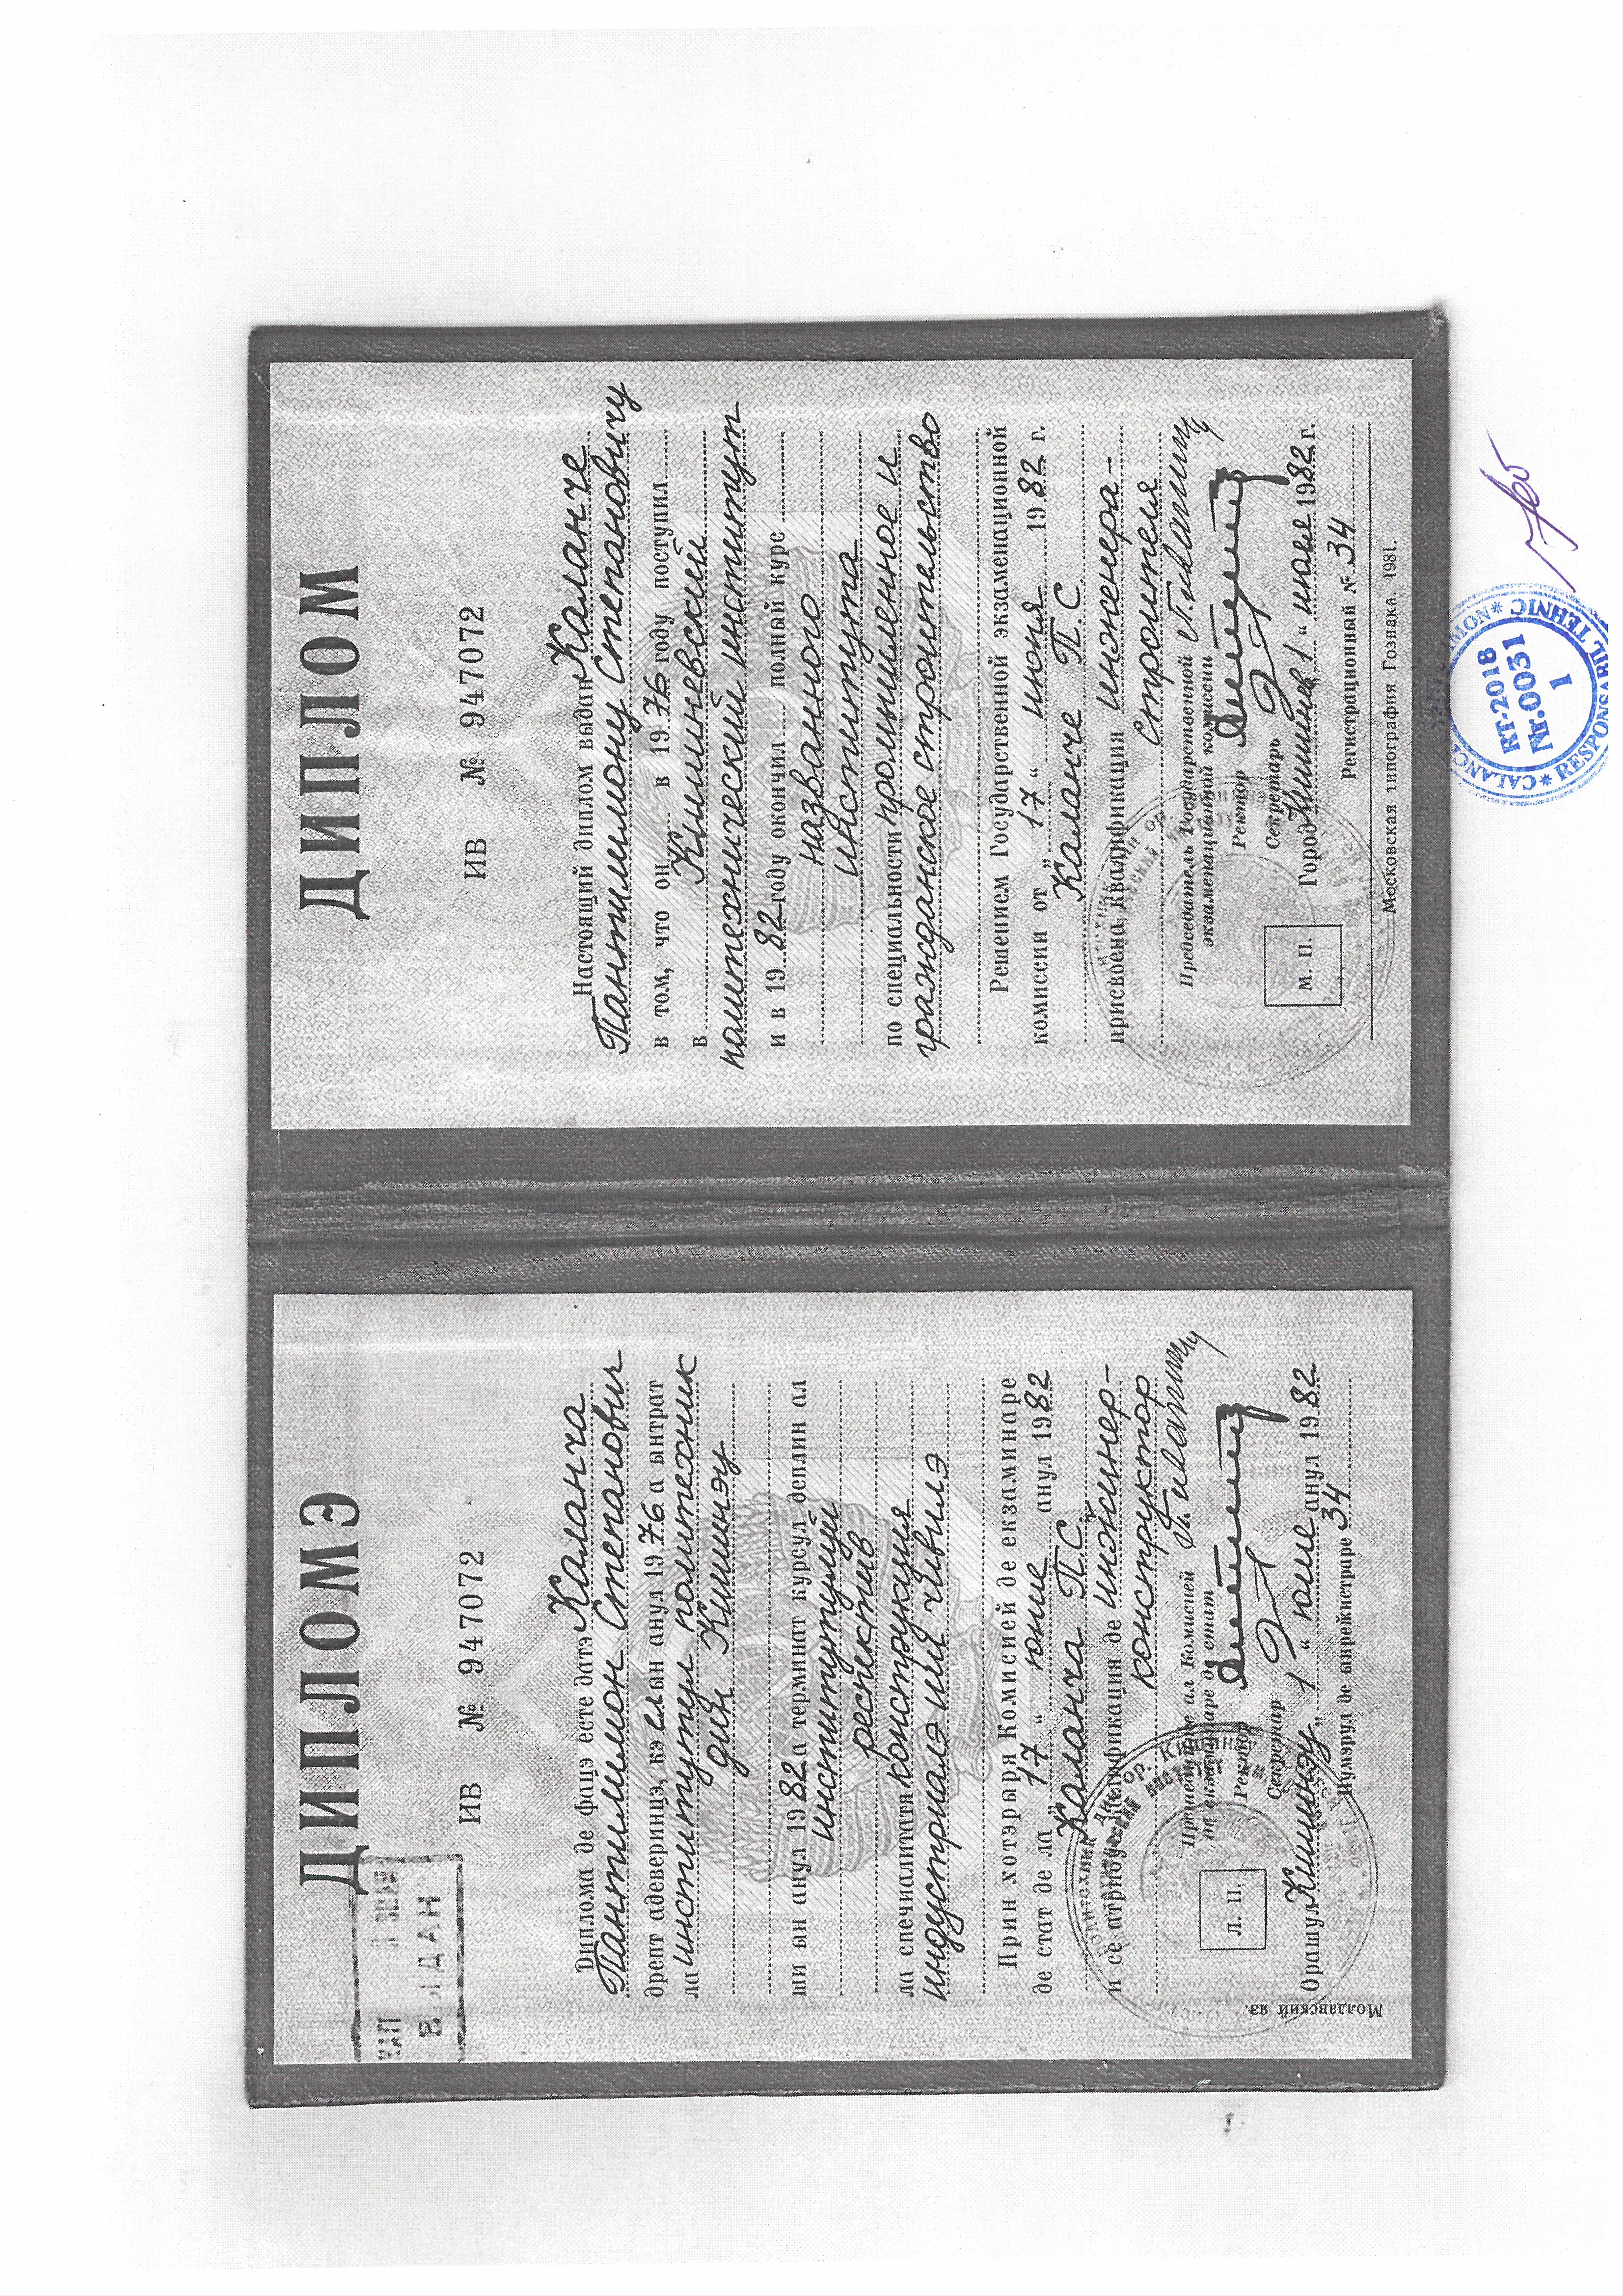 ДИПЛОМЭ
ВЫДАН
ИВ № 947072
Диплома де фацэ есте датэ Каланча
Пантилимон Степанович
дрепт адеверинцэ, кэ ел ын анул 1976 а ынтрат
ла институтул политехник
дин Кишинэу
ши ын анул 1982 а терминат курсул деплин ал
институтулуй
респектив
ла спечиалитатя конструкция
индустриалэ ши чивилэ
Прин хотэрыря Комисией де екзаминаре
де стат де ла „17“ юние анул 1982
Каланча П.С.
и се атрибуе калификация де инжинер-
конструктор
Прешединтеле ал Комисией
де екзаминаре де стат
Ректор
Секретар
Л. П.
Орашул Кишинэу „1“ юлие анул 1982
Нумэрул де ынрежистраре 34
Молдавский яз.
ДИПЛОМ
ИВ № 947072
Настоящий диплом выдан Каланче
Пантилимону Степановичу
в том, что он в 1976 году поступил
в Кишиневский
политехнический институт
и в 1982 году окончил полный курс
названного
института
по специальности промышленное и
гражданское строительство
Решением Государственной экзаменационной
комиссии от „17“ июня 1982 г.
Каланче П.С.
присвоена квалификация инженера-
строителя
Председатель Государственной
экзаменационной комиссии
Ректор
Секретарь
М. П.
Город Кишинев „1“ июля 1982 г.
Регистрационный № 34
Московская типография Гознака 1981.
RT-2018
Nr.0031
1